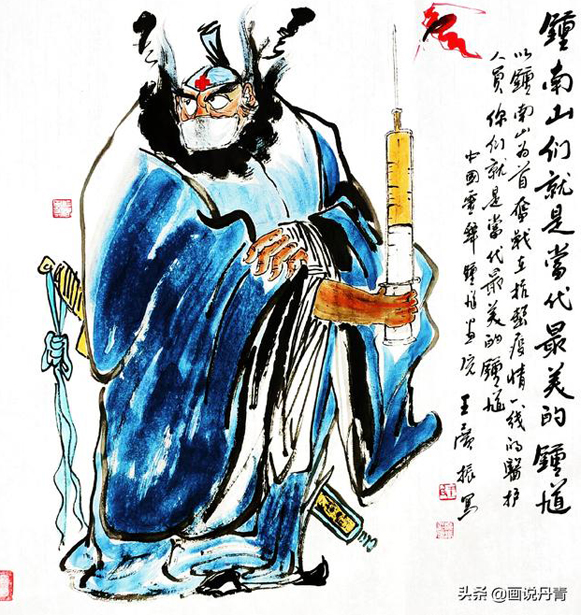 鍾南山们就是當代最美的鍾馗
以鍾南山为首奮戰在抗擊疫情一线的醫护
人員你们就是當代最美的鍾馗
中國靈璧鍾馗画院 王廣振寫
头条 @画说丹青